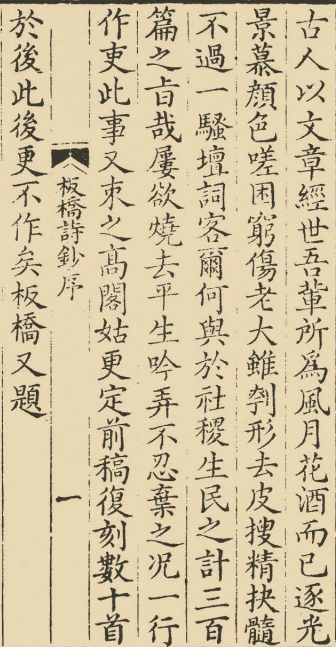 古人以文章經世吾輩所爲風月花酒而已逐光
景慕顔色嗟困窮傷老大雖刳形去皮搜精抉髓
不過一騷壇詞客爾何與於社稷生民之計三百
篇之旨哉屢欲燒去平生吟弄不忍棄之况一行
作吏此事又束之高閣姑更定前稿復刻數十首
板橋詩鈔序 一
於後此後更不作矣板橋又題